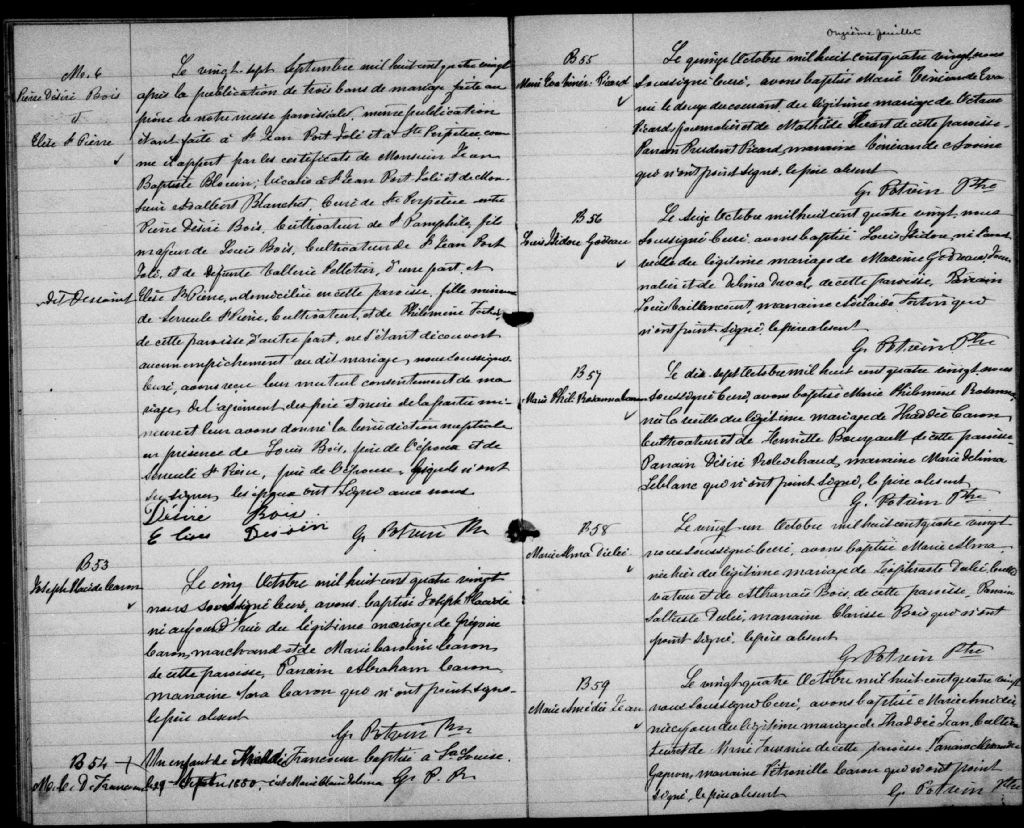 M. 6
Pierre Désiré Bois
&
Elise St Pierre
Le vingt sept Septembre mil huit cent quatre vingt
après la publication de trois bans de mariage faite au
prône de notre messe paroissiale, même publication
étant faite à St Jean Port Joli et à Ste Perpétue com
me il appert par les certificats de Monsieur Jean
Baptiste Blouin, vicaire à St Jean Port Joli et de Mon
sieur Adalbert Blanchet, Curé de Ste Perpétue entre
Pierre Désiré Bois, Cultivateur de St Pamphile, fils
majeur de Louis Bois, Cultivateur de St Jean Port
Joli, et de défunte Vallerie Pelletier, d'une part, et
Elise St Pierre, domiciliée en cette paroisse, fille mineure
de Serreule St Pierre, Cultivateur, et de Philomène
de cette paroisse d'autre part, ne s'étant découvert
aucun empêchement au dit mariage, nous soussigné
Curé, avons reçu leur mutuel consentement de ma
riage, de l'agrément des père et mère de la partie mi
neure et leur avons donné la bénédiction nuptiale
en présence de Louis Bois, père de l'époux et de
Serreule St Pierre, père de l'épouse, lesquels n'ont
su signer, les époux ont signé avec nous
Désiré Bois
G. Potvin Ptre
B 53
Joseph Placide Caron
Le cinq Octobre mil huit cent quatre vingt
nous soussigné Curé, avons baptisé Joseph Placide
né aujourd'hui du légitime mariage de Grégoire
Caron, marchand et de Marie Caroline Caron
de cette paroisse, Parrain Abraham Caron
marraine Sara Caron qui n'ont point signé
le père absent
G. Potvin Ptre
B 54 +
M. C. D. Francoeur
Un enfant de Francoeur baptisé à Ste Louise
le 29 Septbre 1880, c'est Marie Clara Delima G. P. Ptre
Onzième feuillet
B 55
Picard
Le quinze Octobre mil huit cent quatre vingt, nous
soussigné Curé, avons baptisé Marie
née le douze du courant du légitime mariage de Octave
Picard, journalier et de Mathilde de cette paroisse
Parrain Prudent Picard, marraine
qui n'ont point signé. le père absent
G. Potvin Ptre
B 56
Louis Isidore Godreau
Le seize Octobre mil huit cent quatre vingt, nous
soussigné Curé, avons baptisé Louis Isidore, né l'avant
veille du légitime mariage de Maxime Godreau, Jour
nalier et de Delima Duval, de cette paroisse, Parrain
Louis Vaillancourt, marraine Adélaïde Fortin qui
n'ont point signé, le père absent
G. Potvin Ptre
B 57
Marie Phil. Rosanna Caron
Le dix sept Octobre mil huit cent quatre vingt nous
soussigné Curé, avons baptisé Marie Philomène Rosanna
née la veille du légitime mariage de Thaddée Caron,
Cultivateur et de Henriette Bourgault de cette paroisse
Parrain Désiré Robichaud, marraine Marie Delima
Leblanc qui n'ont point signé, le père absent
G. Potvin Ptre
B 58
Marie Alma Dubé
Le vingt un Octobre mil huit cent quatre vingt
nous soussigné Curé, avons baptisé Marie Alma
née hier du légitime mariage de Dubé, Culti
vateur et de Athanaïs Bois, de cette paroisse, Parrain
Salluste Dubé, marraine Clarisse Bois qui n'ont
point signé, le père absent
G. Potvin Ptre
B 59
Marie Amédée Jean
Le vingt quatre Octobre mil huit cent quatre vingt
nous soussigné Curé, avons baptisé Marie Amédée
né ce jour du légitime mariage de Thaddée Jean, Cultiva
teur et de Marie Fournier de cette paroisse Parrain Alexandre
Gagnon, marraine Pétronille Caron qui n'ont point
signé, le père absent
G. Potvin Ptre